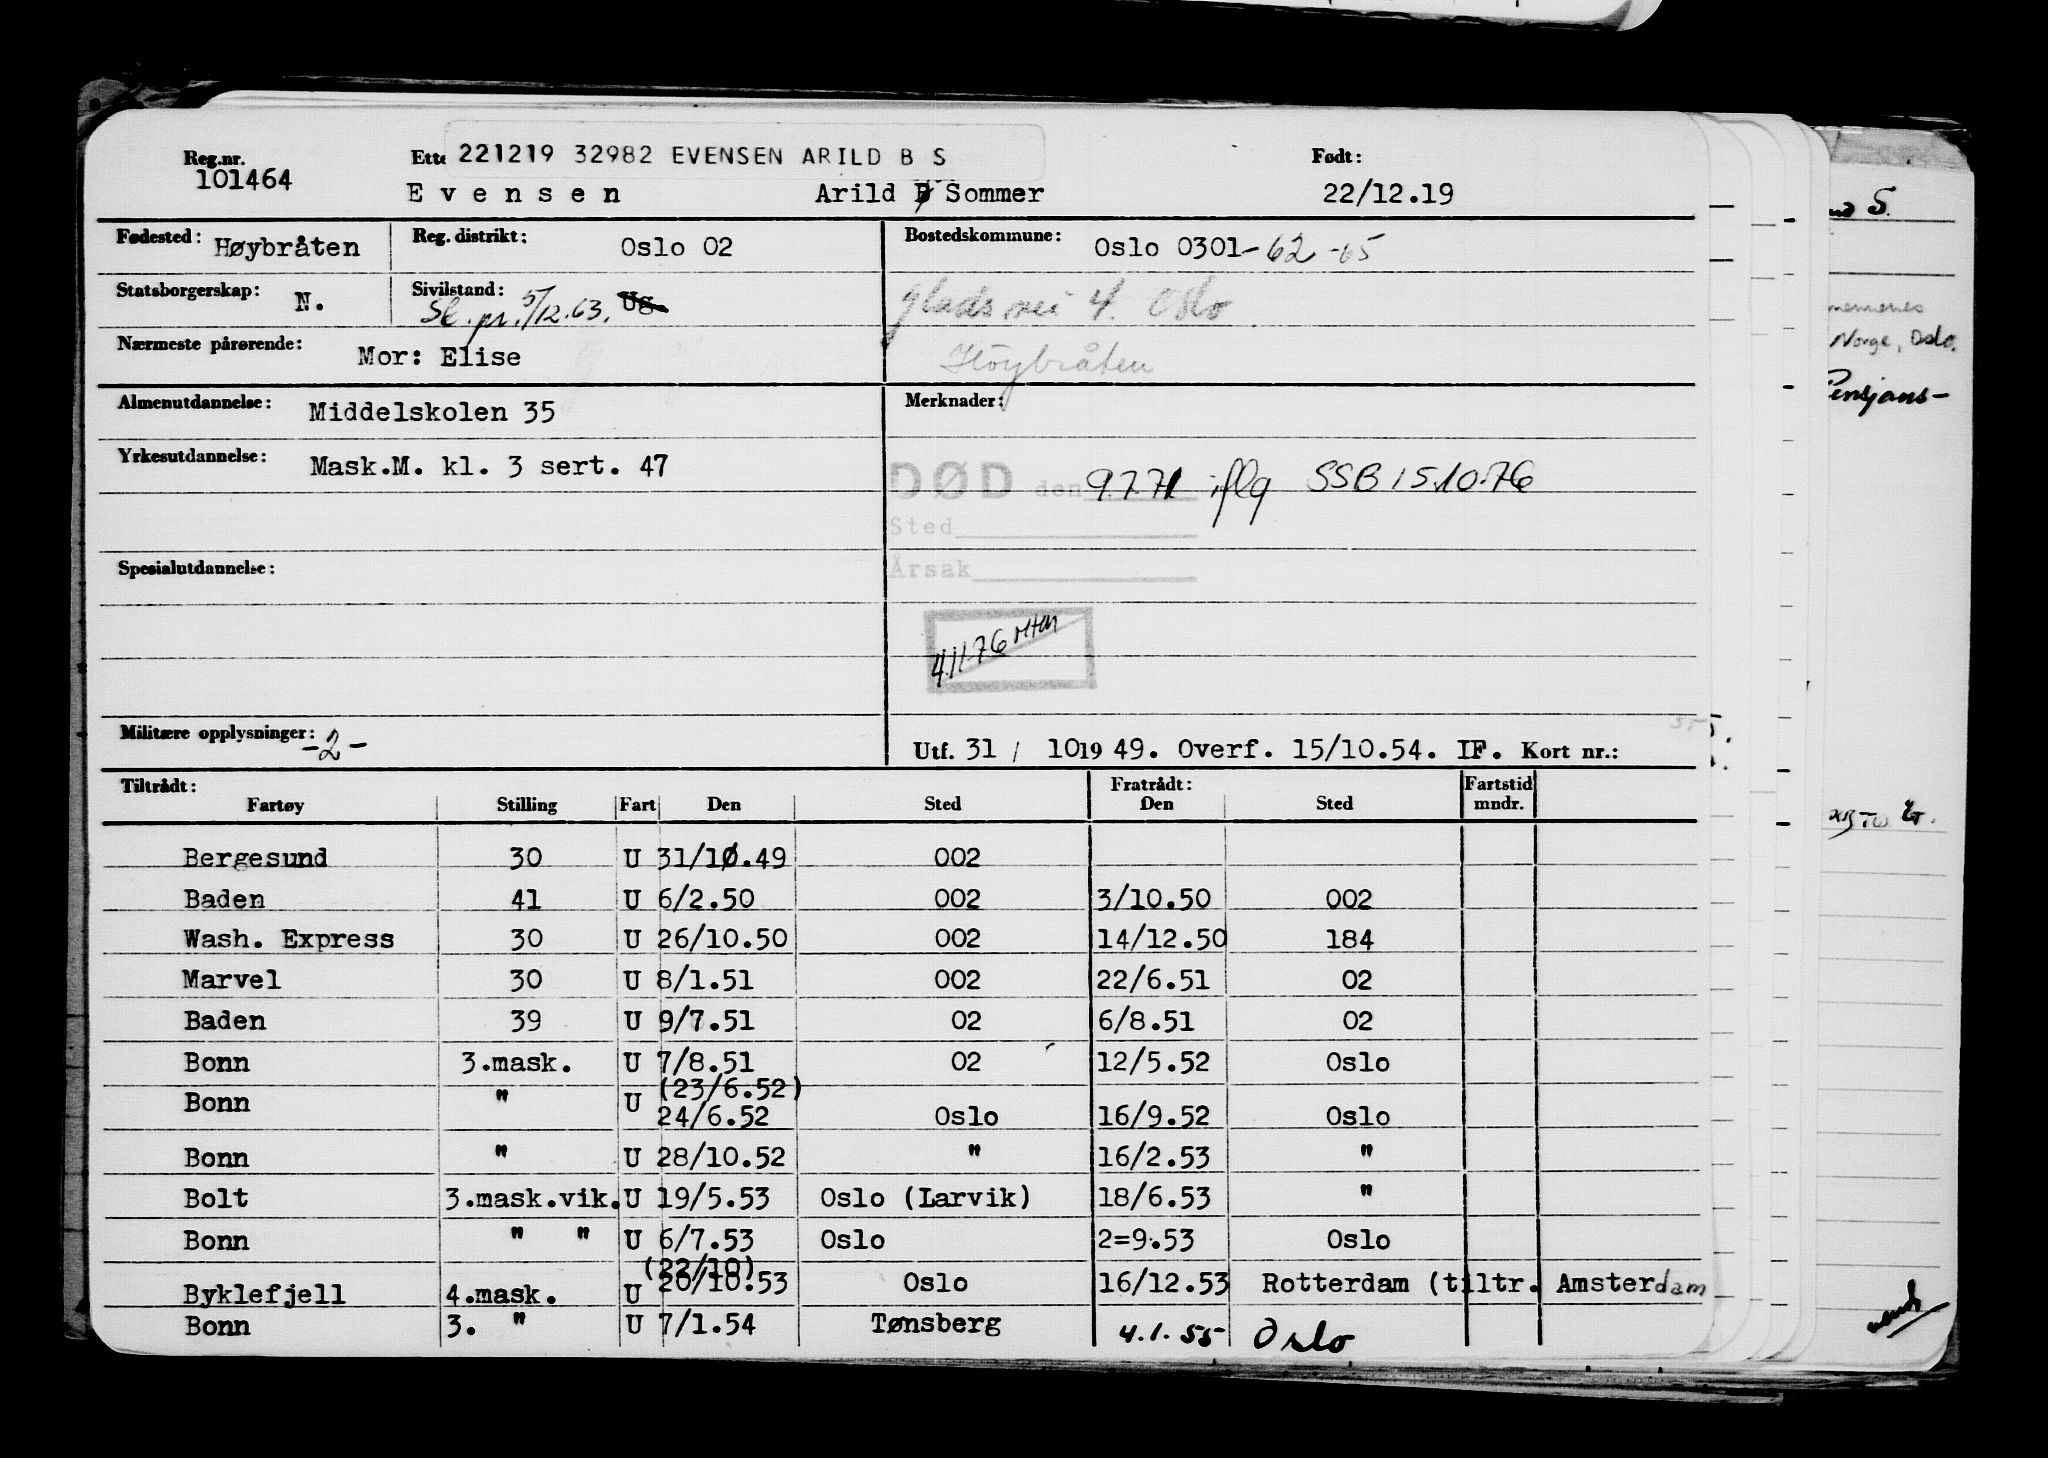 Reg.nr. Ette 221219 32982 EVENSEN ARILD B S Født:
101464 Evensen Arild B Sommer 22/12.19
Fødested: Høybråten Reg. distrikt: Oslo 02 Bostedskommune: Oslo 0301-62-65
Statsborgerskap: N. Sivilstand: Sk. pr. 5/12.63. Ug. Glads vei 4. Oslo
Nærmeste pårørende: Mor: Elise Höybråten
Almenutdannelse: Middelskolen 35 Merknader:
Yrkesutdannelse: Mask.M. kl. 3 sert. 47 DØD den 9771 iflg SSB 15.10.76
Sted
Spesialutdannelse: Årsak
4.11.76
Militære opplysninger: -2- Utf. 31 / 10 19 49. Overf. 15/10.54. IF. Kort nr.:
Tiltrådt: Fratrådt: Fartstid
Fartøy Stilling Fart Den Sted Den Sted mndr.
Bergesund 30 U 31/10.49 002
Baden 41 U 6/2.50 002 3/10.50 002
Wash. Express 30 U 26/10.50 002 14/12.50 184
Marvel 30 U 8/1.51 002 22/6.51 02
Baden 39 U 9/7.51 02 6/8.51 02
Bonn 3.mask. U 7/8.51 02 12/5.52 Oslo
(23/6.52)
Bonn " U 24/6.52 Oslo 16/9.52 Oslo
Bonn " U 28/10.52 " 16/2.53 "
Bolt 3.mask.vik. U 19/5.53 Oslo (Larvik) 18/6.53 "
Bonn " " U 6/7.53 Oslo 2=9.53 Oslo
(22/10)
Byklefjell 4.mask. U 20/10.53 Oslo 16/12.53 Rotterdam (tiltr. Amsterdam
Bonn 3. " U 7/1.54 Tønsberg 4.1.55 Oslo
S.
Norge, Oslo.
Pensjons-